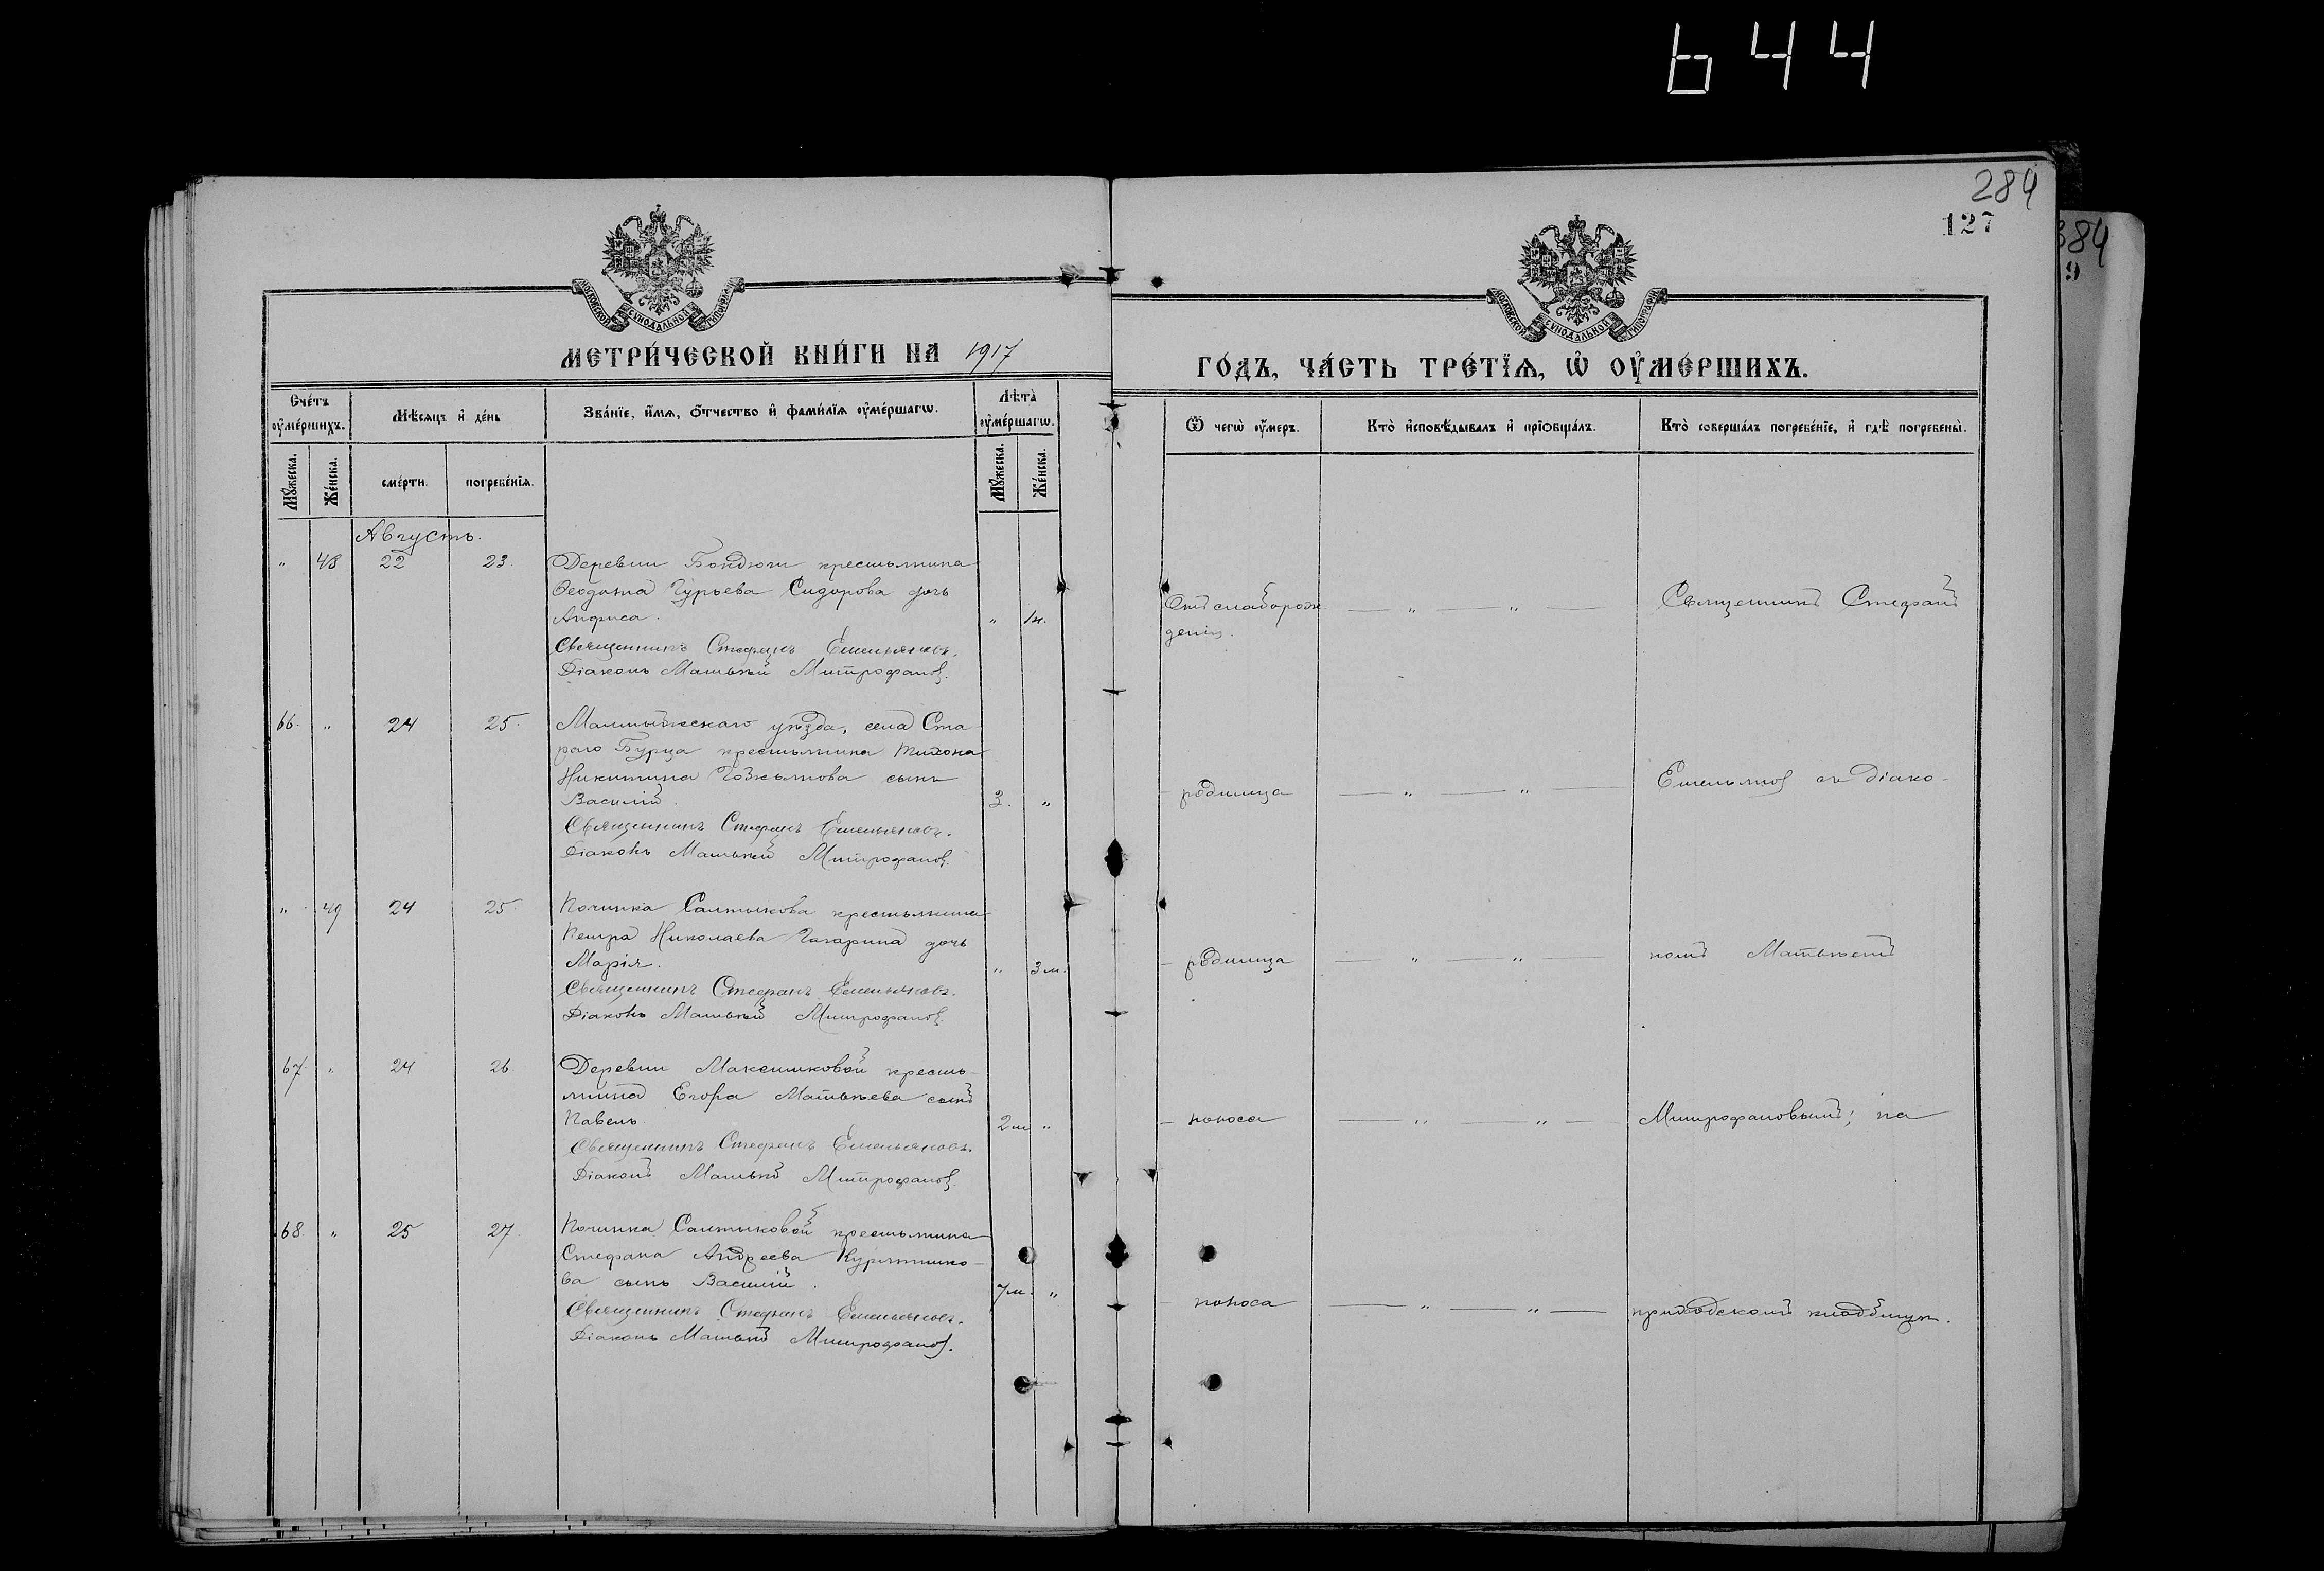 644
284
127
384
9
МОСКОВСКОЙ СѴНОДАЛЬНОЙ ТИПОГРАФІИ
МОСКОВСКОЙ СѴНОДАЛЬНОЙ ТИПОГРАФІИ
МЕТРИ́ЧЕСКОЙ КНИ́ГИ НА 1917
ГО́ДЪ, ЧА́СТЬ ТРЕ́ТЇѦ, Ѡ҆ ОУ҆МЕ́РШИХЪ.
Сче́тъ оу҆ме́ршихъ.
Мѣ́сяцъ и҆ де́нь
Зва́нїе, и҆́мѧ, ѻ҆́тчество и҆ фами́лїѧ оу҆ме́ршагѡ.
Лѣ́та оу҆ме́ршагѡ.
Ѿ чегѡ̀ оу҆́меръ.
Кто̀ и҆сповѣ́дывалъ и҆ прїѡбща́лъ.
Кто̀ соверша́лъ погребе́нїе, и҆ гдѣ̀ погребены̀.
Мꙋ́жеска.
Же́нска.
сме́рти.
погребе́нїѧ.
Мꙋ́жеска.
Же́нска.
Августъ.
" 48 22 23.
Деревни Бондюги крестьянина
Ѳеодота Гурьева Сидорова дочь
Анфиса. "
Священникъ Стефанъ Емельяновъ.
Діаконъ Матѳѣй Митрофановъ.
Отъ слаборож
денія.
— " — " —
Священникъ Стефанъ
66. " 24 25.
Малмыжскаго уѣзда, села Ста
раго Бурца крестьянина Тихона
Никитина сынъ
Василій. 3. "
Священникъ Стефанъ Емельяновъ.
Діаконъ Матѳѣй Митрофановъ.
— родимца — " — " —
Емельяновъ съ діако-
" 49 24 25.
Починка Салтыкова крестьянина
Петра Николаева Гагарина дочь
Марія. " 3 м.
Священникъ Стефанъ Емельяновъ.
Діаконъ Матѳѣй Митрофановъ.
— родимца — " — " —
номъ Матѳѣемъ
67. " 24 26
Деревни Максимковой кресть-
янина Егора Матѳѣева сынъ
Павелъ. 2 м "
Священникъ Стефанъ Емельяновъ.
Діаконъ Матѳѣй Митрофановъ.
— поноса — " — " —
Митрофановымъ; на
68. " 25 27.
Починка Салтыковой крестьянина
Стефана Андреева Курятнико-
ва сынъ Василій. 7 м. "
Священникъ Стефанъ Емельяновъ.
Діаконъ Матѳѣй Митрофановъ.
— поноса — " — " —
приходскомъ кладбищѣ.